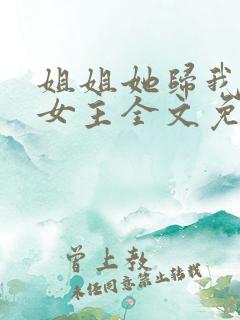 姐姐她歸我
女王全文免
曾上教
未任同意禁止转载